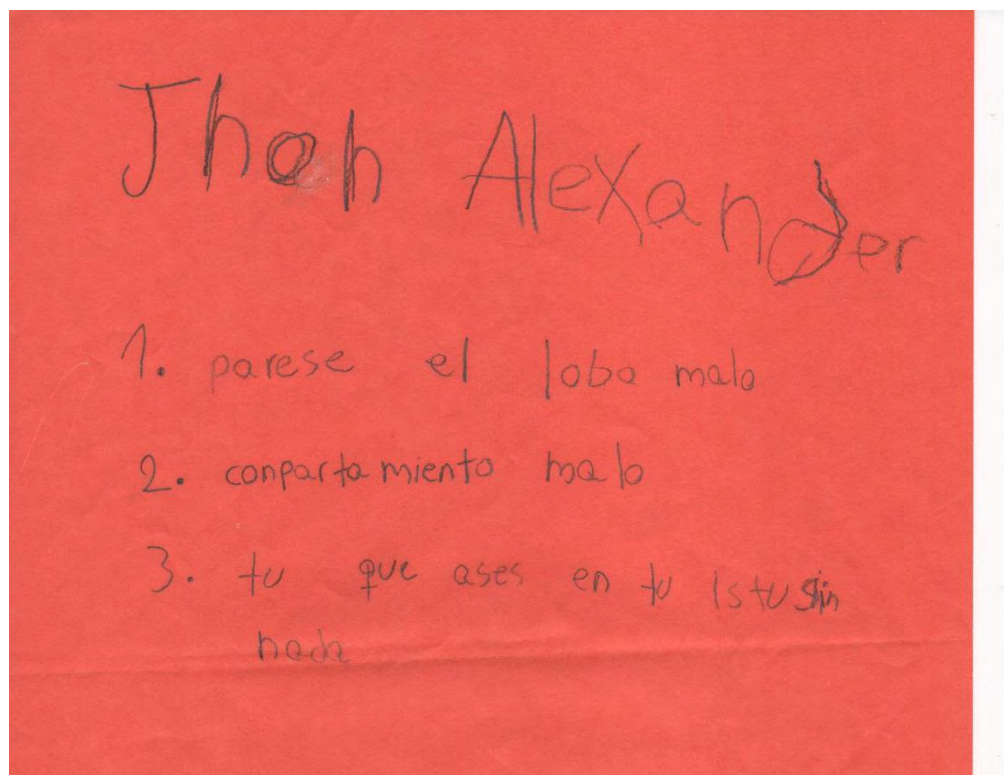 Jhoan Alexander
1. parese el lobo malo
2. conportamiento malo
3. tu que ases en tu
nada